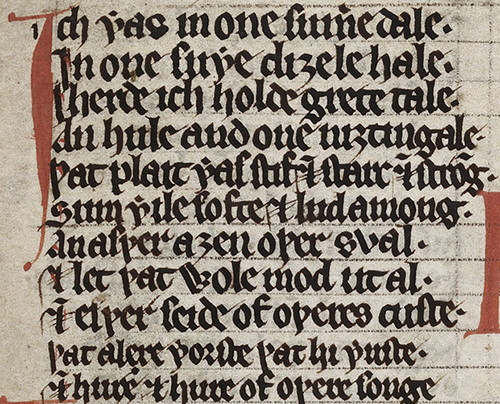 Ich ƿas in one sum̄e dale·
In one suþe diȝele hale·
Iherde ich holde grete tale·
An hule and one niȝtingale·
Þat plait ƿas stif ⁊ starc ⁊ strōg·
Sum ƿile softe ⁊ lud among·
An aiþer aȝen oþer sval·
⁊ let þat wole mod ut al·
⁊ eiþer seide of oþeres custe·
þat alere ƿorste þat hi ƿuste·
⁊ hure ⁊ hure of oþere songe